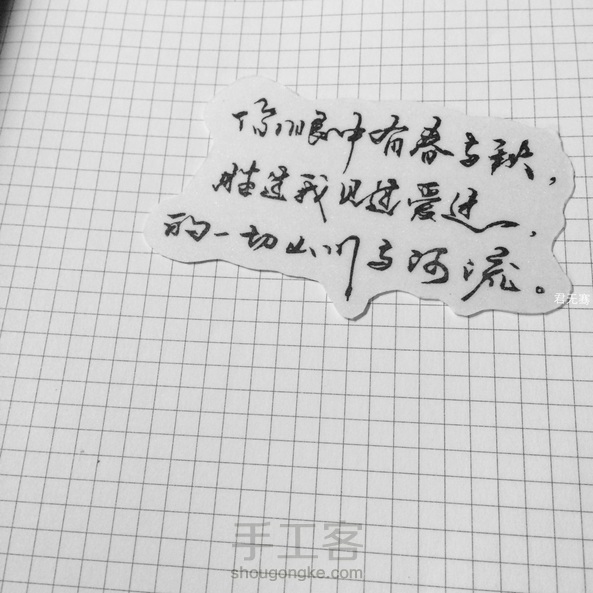 你眼中有春与秋，
胜过我见过爱过，
的一切山川与河流。
君无骞
手工客
shougongke.com